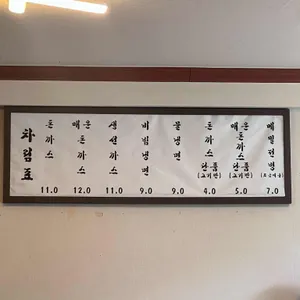 차림표
돈까스 11.0
매운돈까스 12.0
생선까스 11.0
비빔냉면 9.0
물냉면 9.0
돈까스 단품 (고기만) 4.0
매운돈까스 단품 (고기만) 5.0
메밀전병 7.0